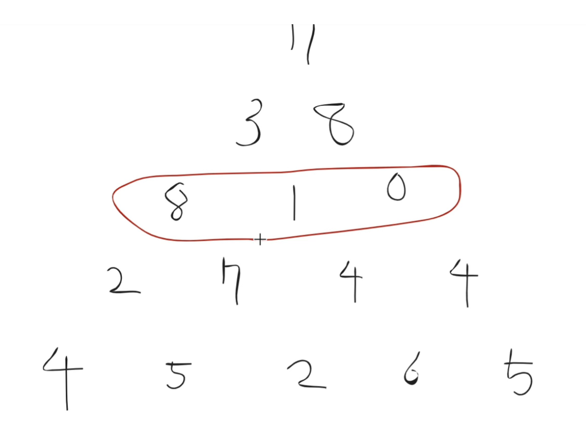 11
3 8
8 1 0
2 7 4 4
4 5 2 6 5